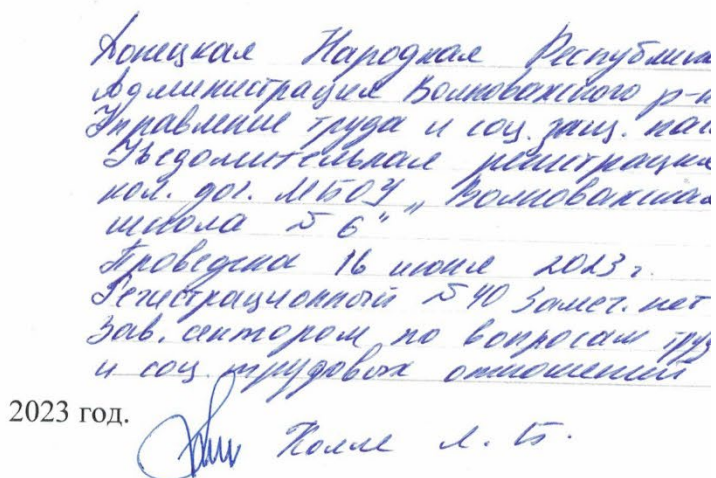 Донецкая Народная Республик
Администрация Волновахского р-н
Управление труда и соц. защ. нас
Уведомительная регистрация
кол. дог. МБОУ „Волновахская
школа № 6"
Проведена 16 июня 2023 г.
Регистрационный № 40 Замеч. нет
Зав. сектором по вопросам труд
и соц. трудовых отношений
2023 год.
Л. Б.